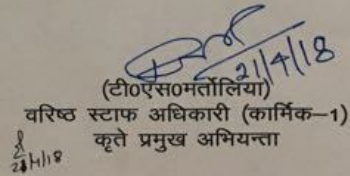 21/4/18
(टी0एस0मर्तोलिया)
वरिष्ठ स्टाफ अधिकारी (कार्मिक–1)
कृते प्रमुख अभियन्ता